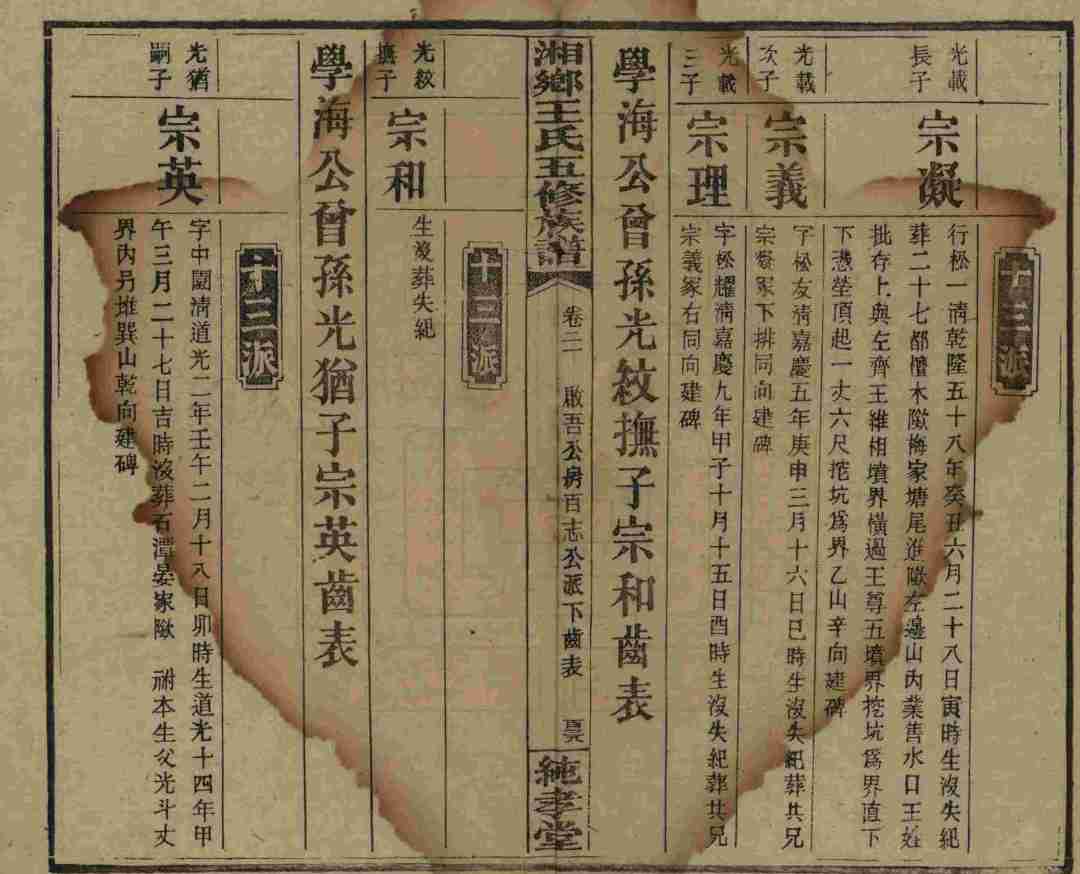 十三派
光載
長子
宗凝
行松一清乾隆五十八年癸丑六月二十八日寅時生沒失紀
葬二十七都檀木歐梅家塘尾進歐左邊山內業善水口王姓
批存上與左齊王維相墳界橫過王尊五墳界挖坑為界直下
下憑塋頂起一丈六尺挖坑為界乙山辛向建碑
光載
次子
宗義
字松友清嘉慶五年庚申三月十六日巳時生沒失紀葬共兄
宗凝冢下排同向建碑
光載
三子
宗理
字松耀清嘉慶九年甲子十月十五日酉時生沒失紀葬共兄
宗義冢右同向建碑
學海公曾孫光紋撫子宗和齒表
湘鄉王氏五修族譜
卷二
啟吾公房百志公派下齒表
純孝堂
十三派
光紋
撫子
宗和
生沒葬失紀
學海公曾孫光猶子宗英齒表
十三派
光猶
嗣子
宗英
字中閫清道光二年壬午二月十八日卯時生道光十四年甲
午三月二十七日吉時沒葬石潭晏家歐 祔本生父光斗丈
界內另堆巽山乾向建碑